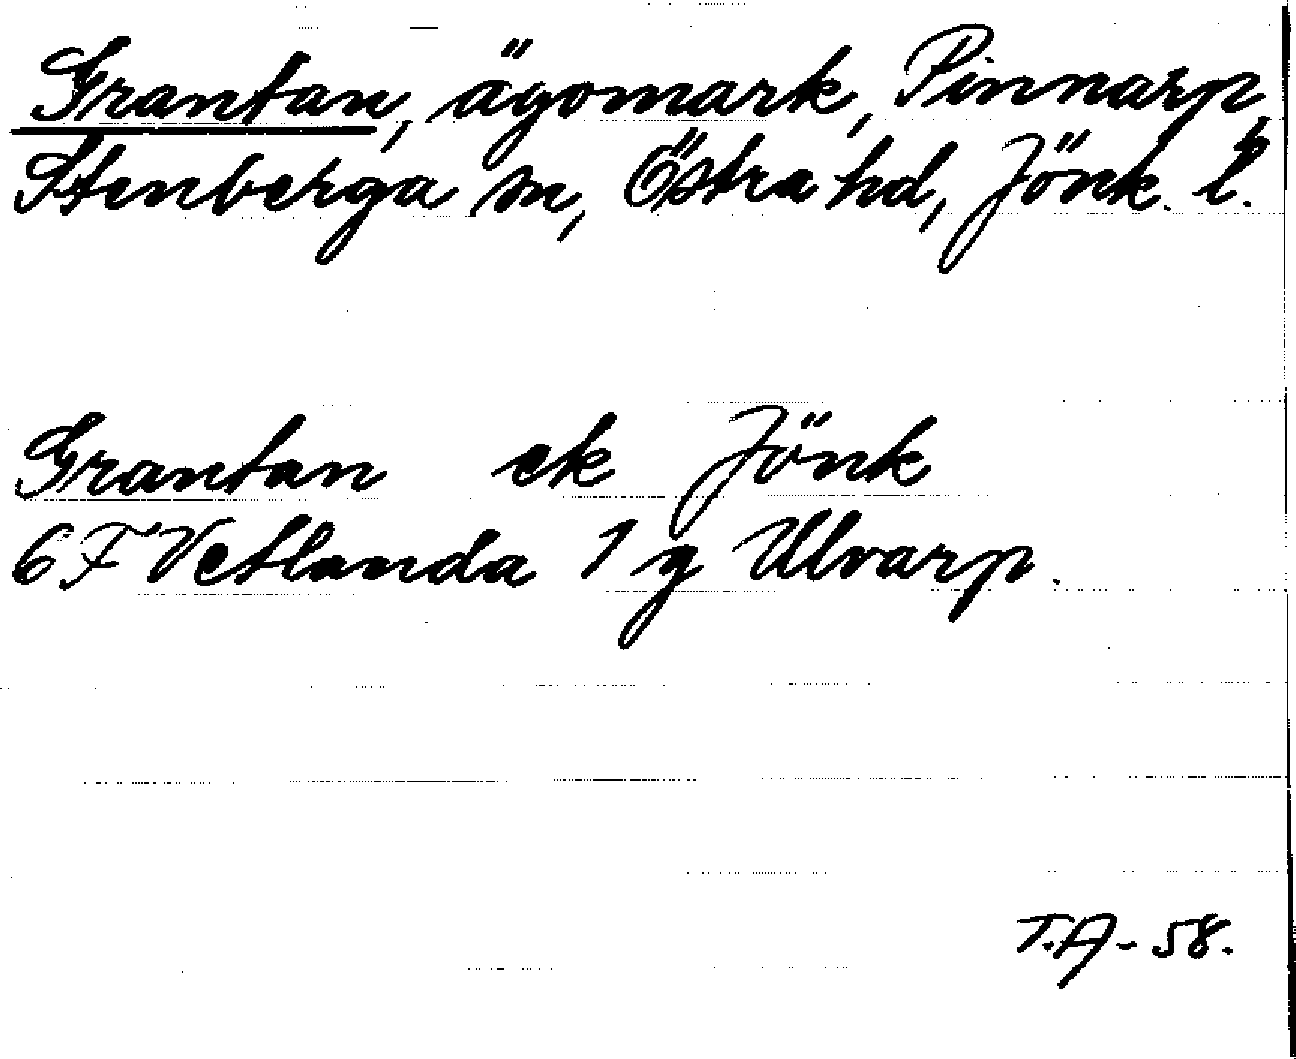 Grantan, ägomark, Pinnarp,
Stenberga sn, Östra hd, Jönk. l.
Grantan ek Jönk
6 F Vetlanda 1 g Ulvarp.
T.A-58.